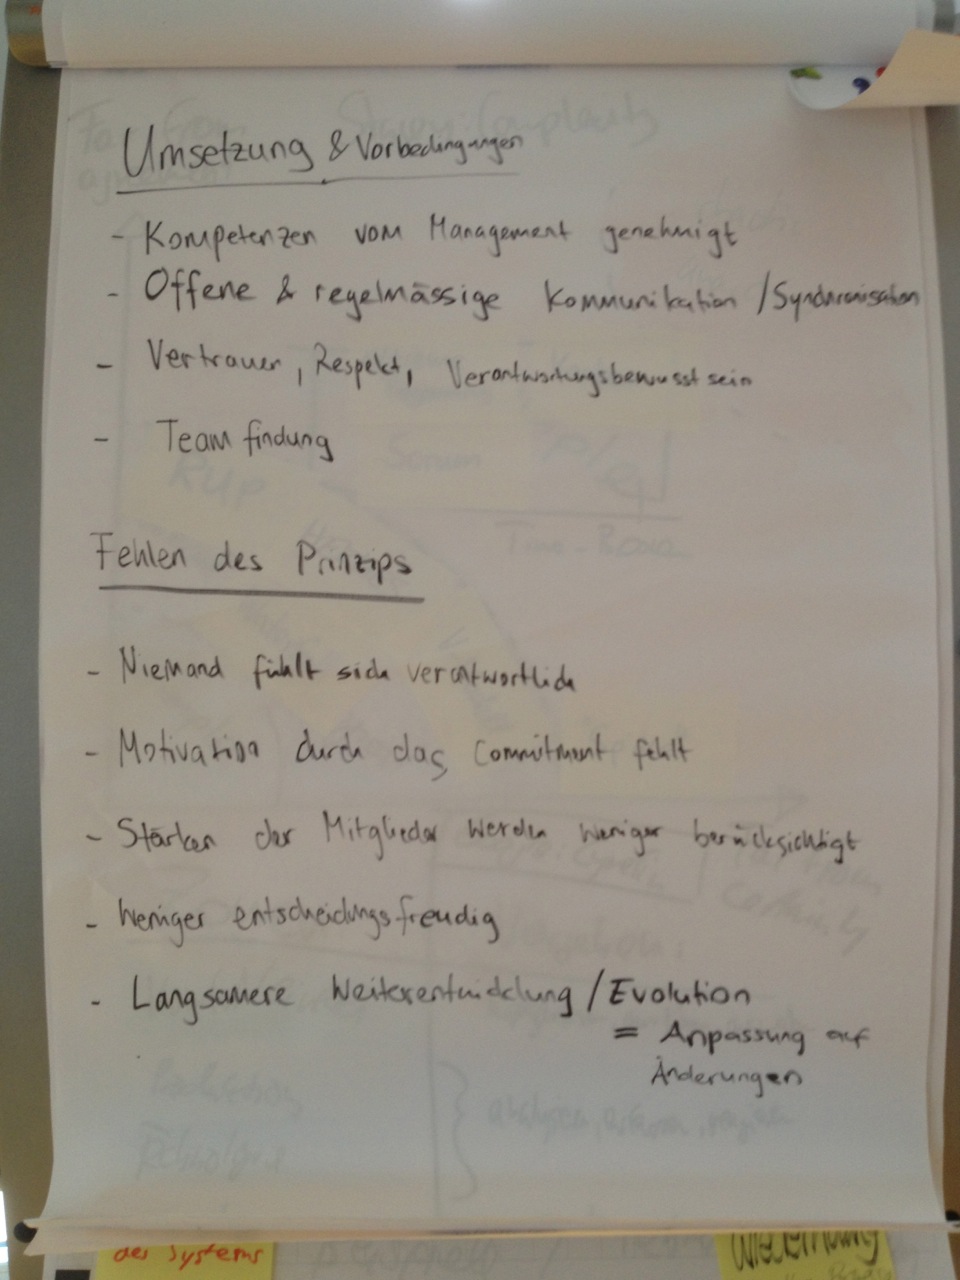 Umsetzung & Vorbedingungen
- Kompetenzen vom Management genehmigt
- Offene & regelmässige Kommunikation / Synchronisation
- Vertrauen, Respekt, Verantwortungsbewusst sein
- Team findung
Fehlen des Prinzips
- Niemand fühlt sich verantwortlich
- Motivation durch das Commitment fehlt
- Stärken der Mitglieder werden weniger berücksichtigt
- Weniger entscheidungsfreudig
- Langsamere Weiterentwicklung / Evolution
= Anpassung auf
Änderungen
des Systems